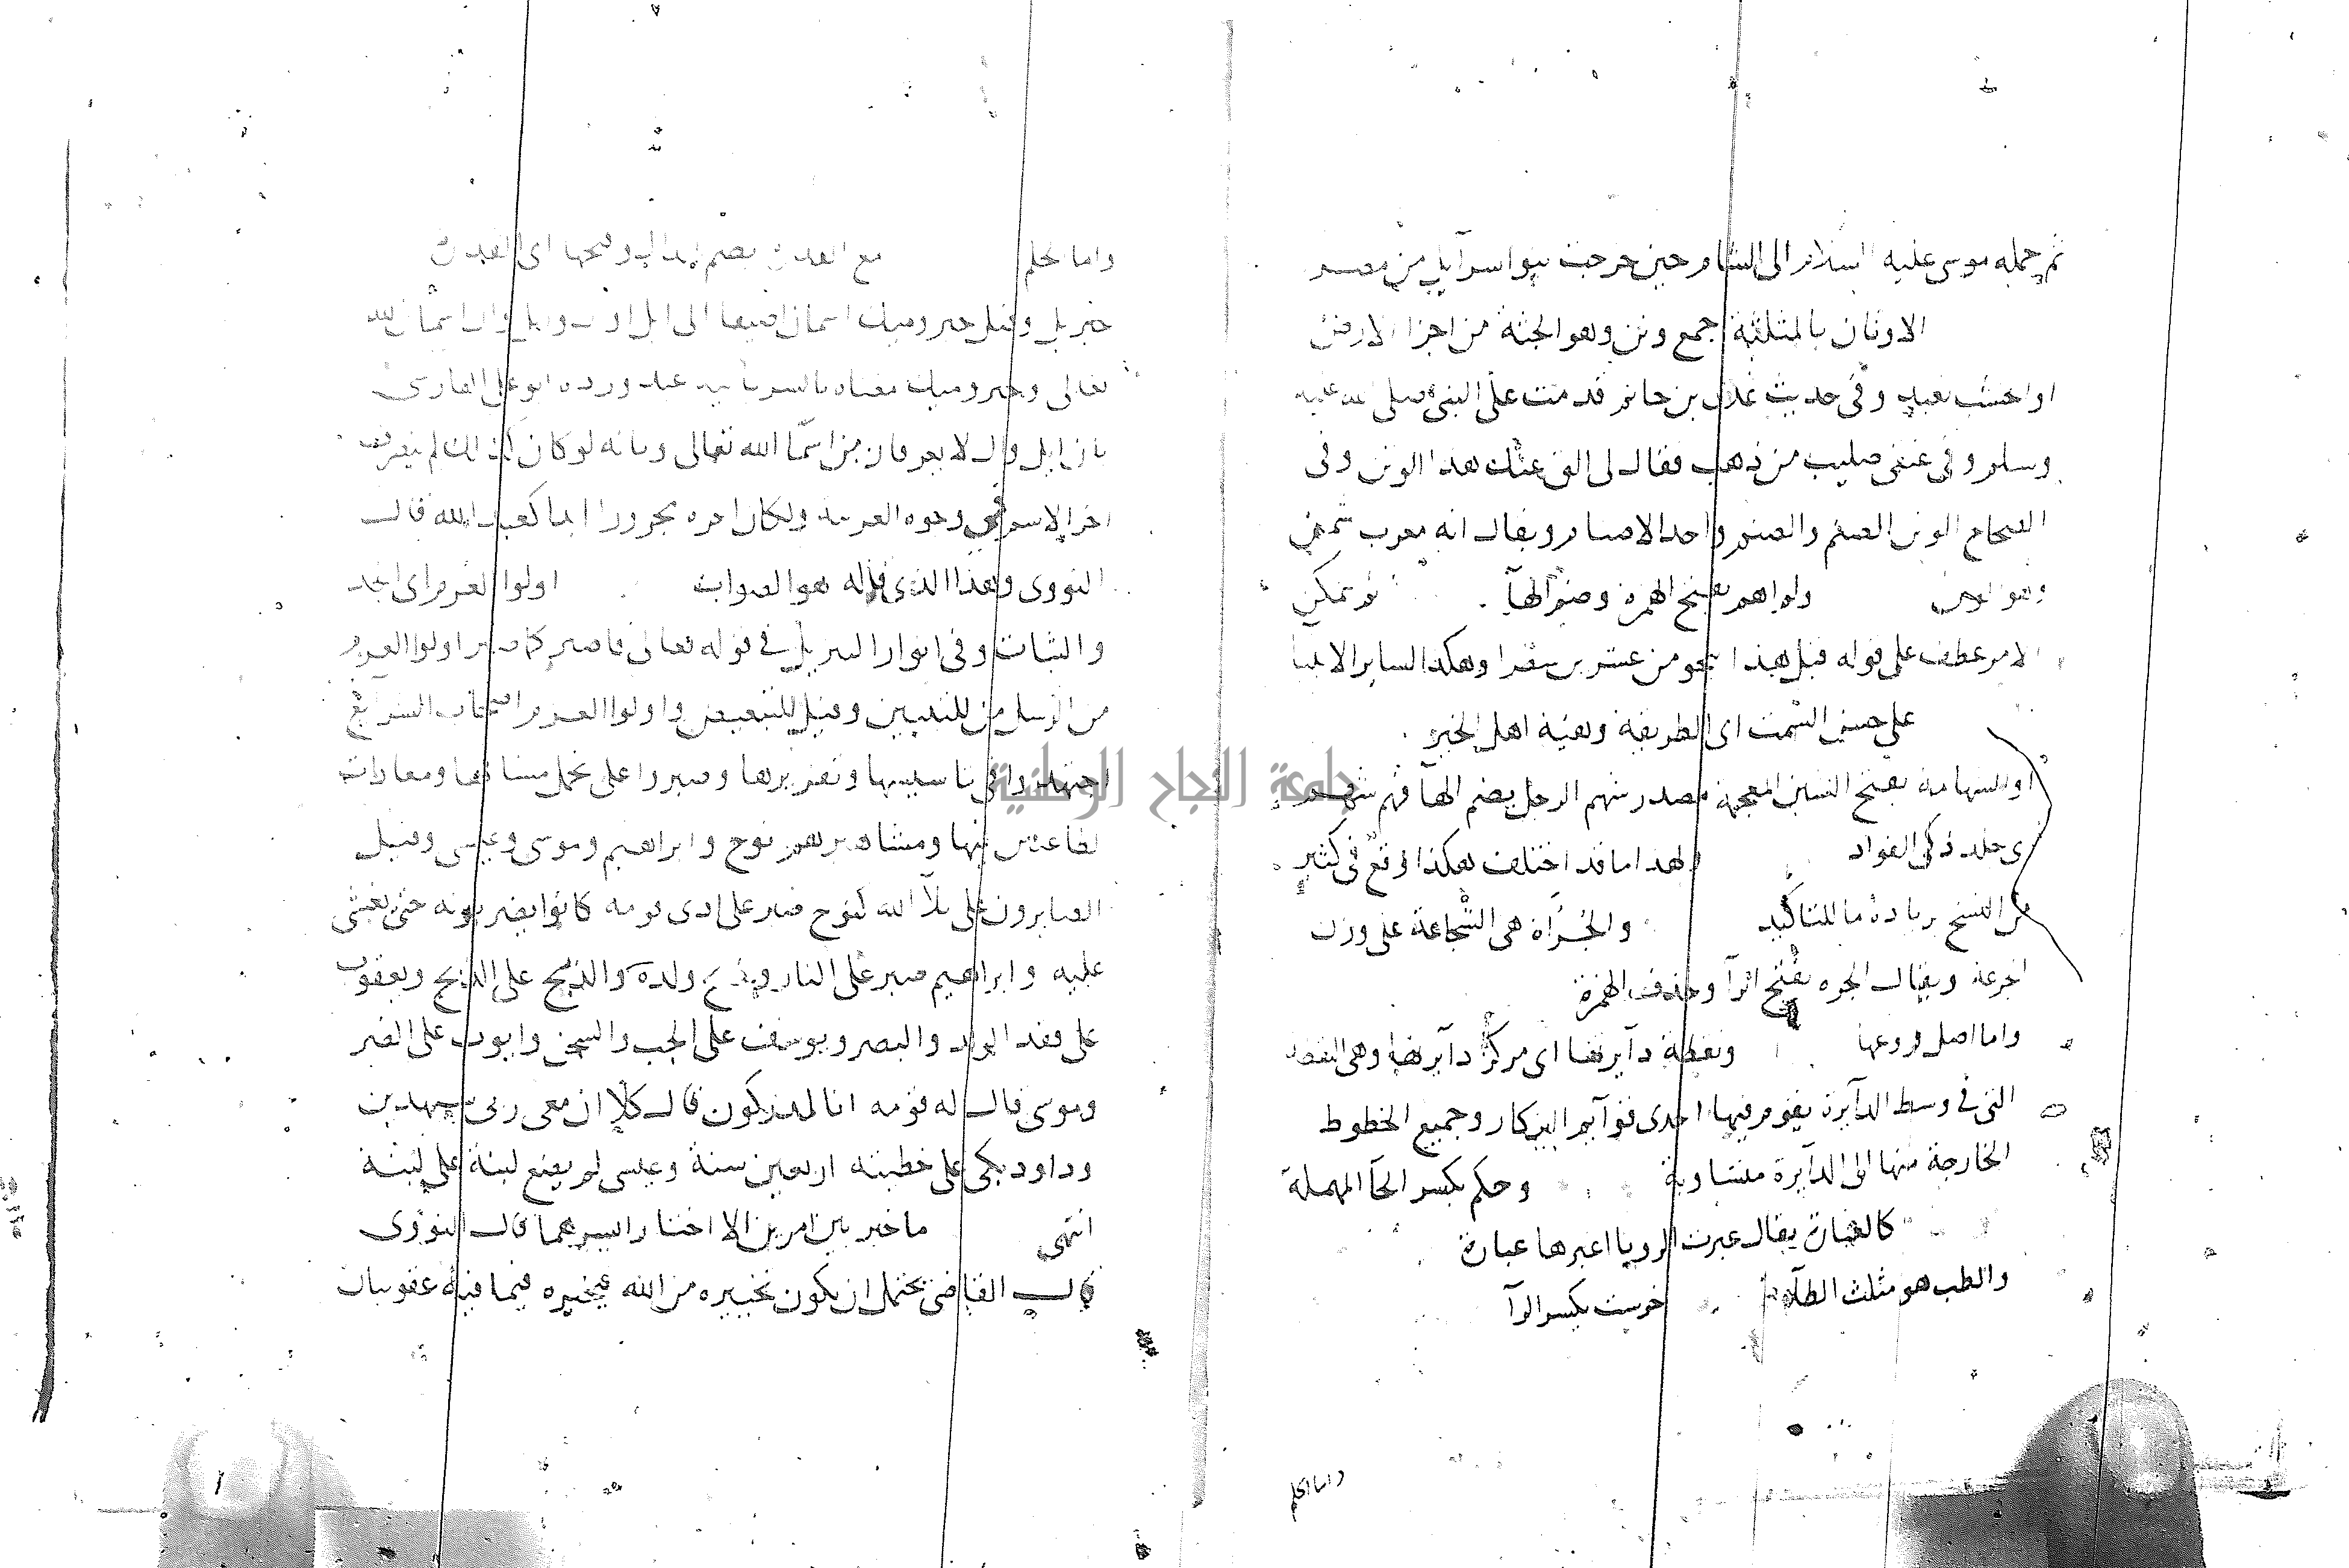 ثم حمله موسى عليه السلام الى الشام حين خرجت بنو اسرآيل من مصر
الاوثان بالمثلثة جمع وثن وهو الجثة من اجزا الارض
او اخشب تعبد وفى حديث عدى بن حاتم قدمت على النبى صلى الله عليه
وسلم وفى عنقى صليب من ذهب فقال لى الق عنك هذا الوثن وفى
الصحاح الوثن الصنم والصنم واحد الاصنام ويقال انه معرب شمن
وهو الوثن ولوا هم بفتح الهمزة وضم الهآ ثم تمكن
الامر عطف على قوله قبل هذا نحو من عشرين سفرا وهكذا ساير الانبيا
على حسن السمت اى الطريقة وهية اهل الخير
او الشهامة بفتح الشين المعجمة مصدر شهم الرجل بضم الهآ فهو شهم
اى جلد ذكى الفواد ولهذا ما قد اختلف هكذا وقع فى كثير
من النسخ بزيادة ما للتاكيد والجرأة هى الشجاعة على وزن
الجرعة ويقال الجره بفتح الرآ وحذف الهمزة
واما اصل فروعها ونقطة دآيرتها اى مركز دآيرتها وهى النقطة
التى فى وسط الدآيرة يقوم فيها احدى قوآيم البركار وجميع الخطوط
الخارجة منها الى الدآيرة متساوية وحكم بكسر الحآ المهملة
كالعبارة يقال عبرت الرويا اعبرها عبارة
والطب هو مثلث الطآ خرست بكسر الرآ
واما الحلم
واما الحلم مع القدرة بضم الدال وفتحها اى القدرة
جبريل وقيل جبر وميك اسمان اضيفا الى ايل او ال وايل وال اسمان لله
تعالى وجبر وميك معناه بالسريانية عبد ورده ابو على الفارسى
بان ايل وال لا يعرفان من اسمآ الله تعالى وبانه لو كان كذلك لم ينصرف
اخر الاسم فى وجوه العربية ولكان اخره مجرورا ابدا كعبد الله قال
النووى وهذا الذى قاله هو الصواب اولوا العزم اى الجد
والثبات وفى انوار التنزيل فى قوله تعالى فاصبر كما صبر اولوا العزم
من الرسل من للتبيين وقيل للتبعيض واولوا العزم اصحاب الشرايع
اجتهدوا فى تاسيسها وتقريرها وصبروا على تحمل مشاقها ومعادات
الطاعنين فيها ومشاهيرهم نوح وابراهيم وموسى وعيسى وقيل
الصابرون على بلآ الله كنوح صبر على اذى قومه كانوا يضربونه حتى يغشى
عليه وابراهيم صبر على النار وذبح ولده والذبيح على الذبح ويعقوب
على فقد الولد والبصر ويوسف على الجب والسجن وايوب على الضر
وموسى قال له قومه انا لمدركون قال كلا ان معى ربى سيهدين
وداود بكى على خطيته اربعين سنة وعيسى لم يضع لبنة على لبنة
انتهى ما خير بين امرين الا اختار ايسرهما قال النووى
قال القاضى يحتمل ان يكون تخييره من الله فيخيره فيما فيه عقوبتان
جامعة النجاح الوطنية